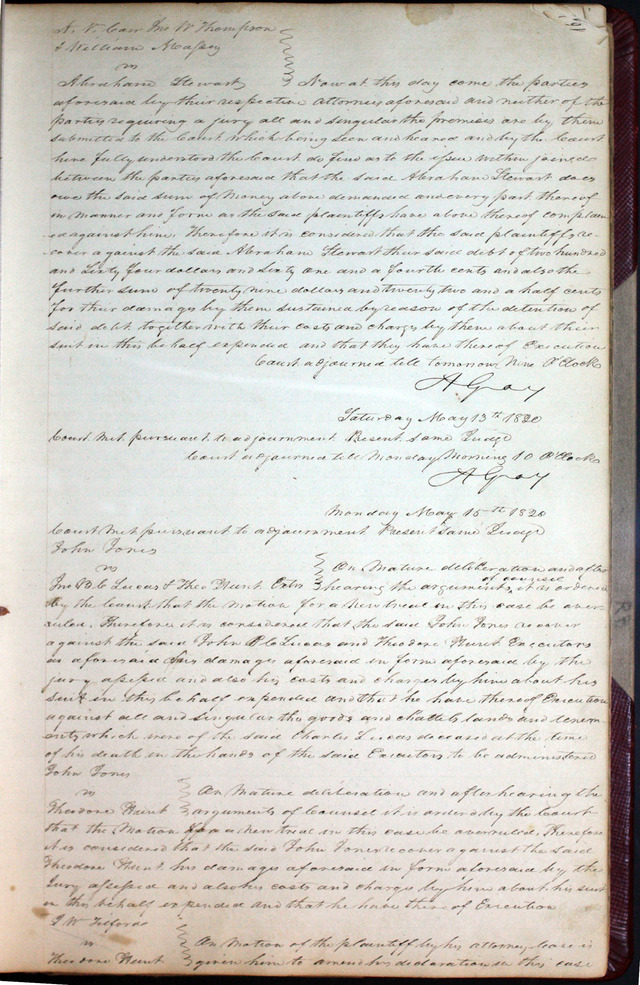 A. V. Carr Jno W Thompson
& William Massey
vs
Abraham Stewart Now at this day come the parties
aforesaid by their respective attornies aforesaid and neither of the
parties requiring a jury all and singular the premises are by them
submitted to the Court which being seen and heared and by the Court
here fully understood the Court do find as to the issue within joined
between the parties aforesaid that the said Abraham Stewart does
owe the said sum of Money above demanded and every part thereof
in manner and form as the said plaintiffs have above thereof complain
ed against him. Therefore it is considered that the said plaintiffs re-
cover against the said Abraham Stewart their said debt of two hundred
and sixty four dollars and sixty one and a fourth cents and also the
further sum of twenty nine dollars and twenty two and a half cents
for their damages by them sustained by reason of the detention of
said debt together with their costs and charges by them about their
suit in this behalf expended and that they have thereof Execution
Court adjourned till tomorrow Nine O'Clock
A Gray
Saturday May 13th 1820
Court met pursuant to adjournment Present same Judge
Court adjourned till Monday Morning 10 O'Clock
A Gray
Monday May 15th 1820
Court met pursuant to adjournment Present same Judge
John Jones
vs On Mature deliberation and after
Jno B C Lucas & Theo Hunt Extrs hearing the arguments of counsel it is ordered
by the Court that the motion for a new treal in this case be over-
ruled. Therefore it is considered that the said John Jones recover
against the said John B C Lucas and Theodore Hunt Executors
as aforesaid his damages aforesaid in form aforesaid by the
jury assessed and also his costs and charges by him about his
suit in this behalf expended and that he have thereof Execution
against all and singular the goods and chattels lands and tenem-
ents which were of the said Charles Lucas deceased at the time
of his death in the hands of the said Executors to be administered
John Jones
vs On Mature deliberation and after hearing the
Theodore Hunt arguments of Counsel it is ordered by the Court
that the Motion for a new treal in this case be overruled. Therefore
it is considered that the said John Jones recover against the said
Theodore Hunt his damages aforesaid in form aforesaid by the
Jury assessed and also his costs and charges by him about his suit
in this behalf expended and that he have thereof Execution
J W Tilford
vs On Motion of the plaintiff by his attorney leave is
Theodore Hunt given him to amend his declaration in this case